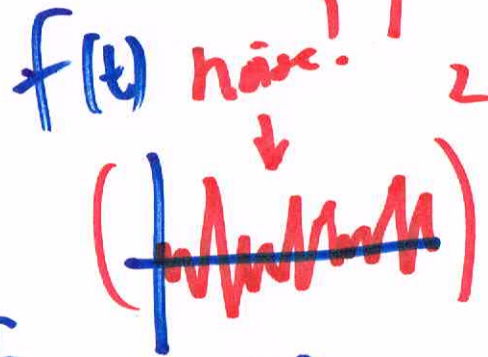 f(t) noise!
2